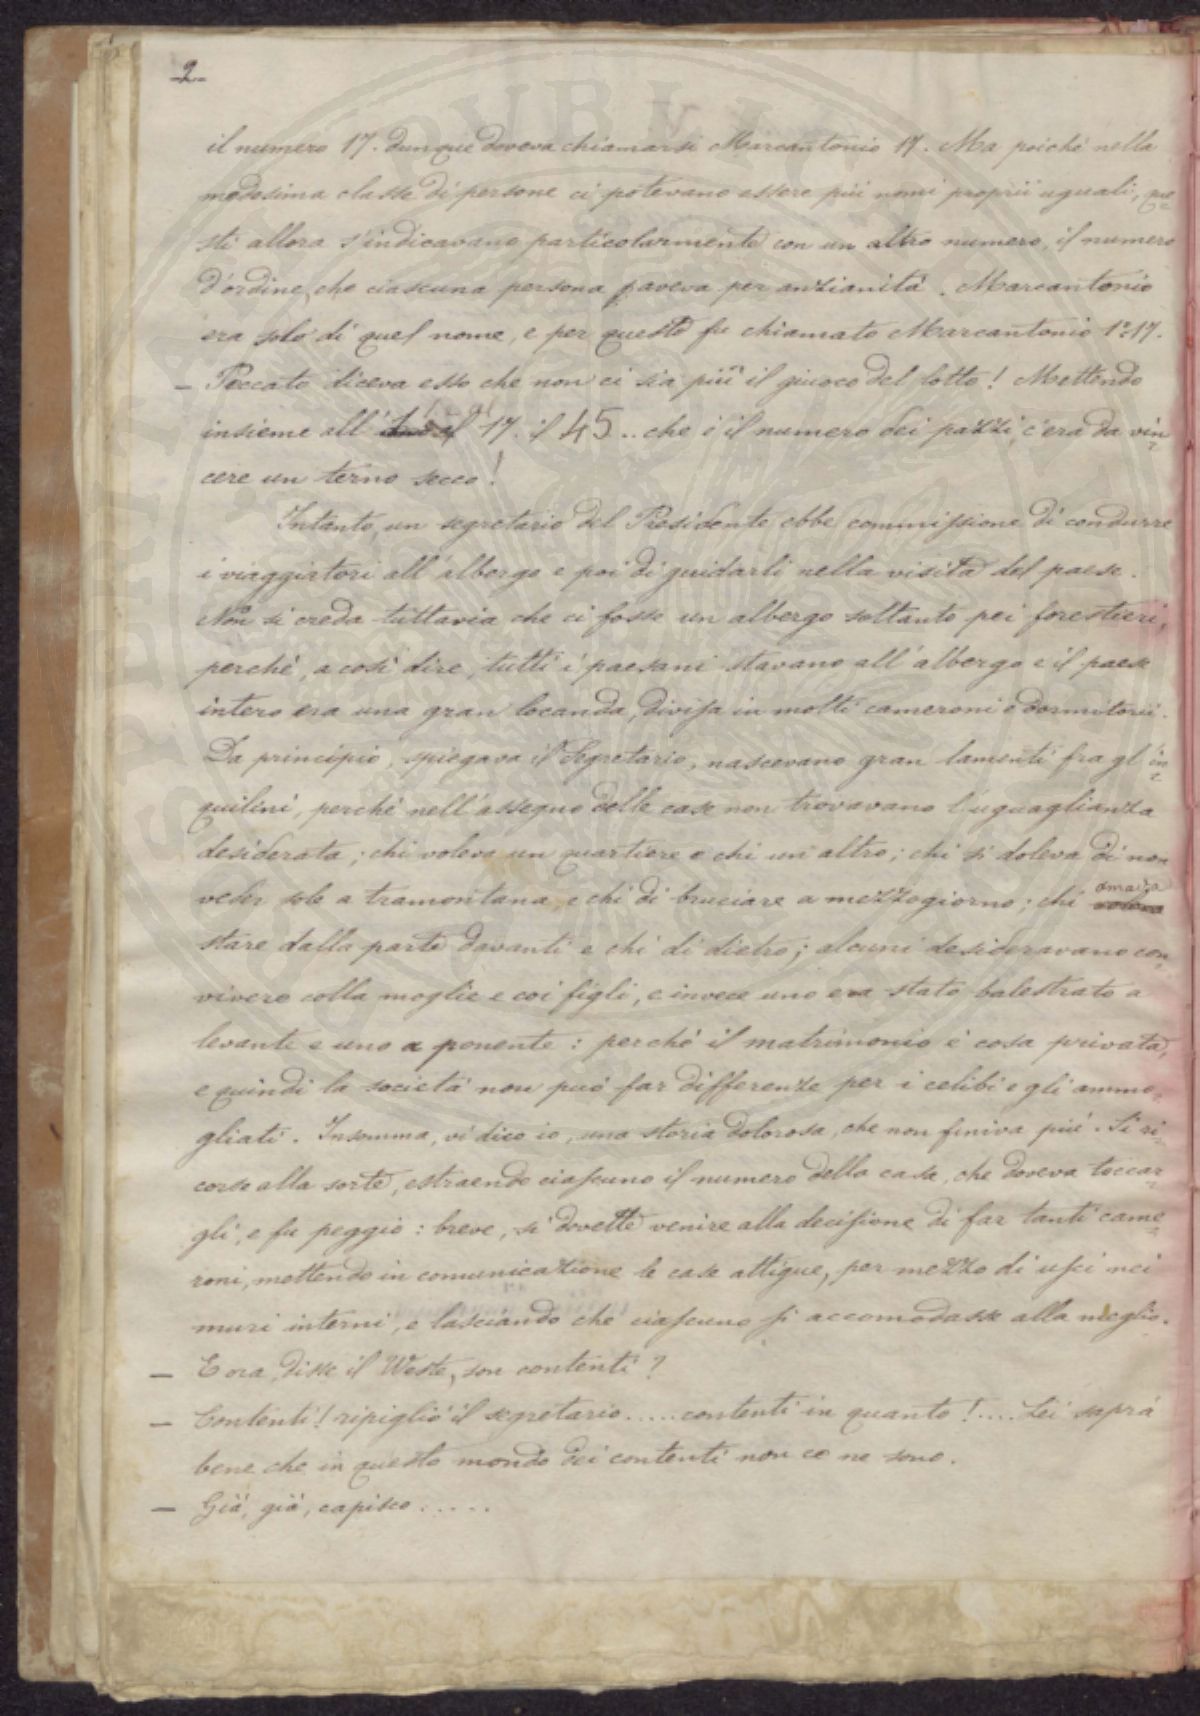 2
il numero 17. dunque doveva chiamarsi Marcantonio 17. Ma poichè nella
medesima classe di persone ci potevano essere più nomi proprii uguali, que=
sti allora s'indicavano particolarmente con un altro numero, il numero
d'ordine, che ciascuna persona aveva per anzianità. Marcantonio
era solo di quel nome, e per questo fu chiamato Marcantonio 1°:17.
— Peccato diceva esso che non ci sia più il giuoco del lotto! Mettendo
insieme all' 17. il 45.. che è il numero dei pazzi, c'era da vin=
cere un terno secco!
Intanto, un segretario del Presidente ebbe commissione di condurre
i viaggiatori all'albergo e poi di guidarli nella visita del paese.
Non si creda tuttavia che ci fosse un albergo soltanto pei forestieri,
perchè, a così dire, tutti i paesani stavano all'albergo e il paese
intero era una gran locanda, divisa in molti cameroni e dormitorii.
Da principio, spiegava il Segretario, nascevano gran lamenti fra gl'in=
quilini, perchè nell'assegno delle case non trovavano l'uguaglianza
desiderata; chi voleva un quartiere e chi un altro; chi si doleva di non
veder sole a tramontana, e chi di bruciare a mezzogiorno; chi amava
stare dalla parte davanti e chi di dietro; alcuni desideravano con=
vivere colla moglie e coi figli, e invece uno era stato balestrato a
levante e uno a ponente: perchè il matrimonio è cosa privata,
e quindi la società non può far differenze per i celibi e gli ammo=
gliati. Insomma, vi dico io, una storia dolorosa, che non finiva più. Si ri=
corse alla sorte, estraendo ciascuno il numero della casa, che doveva toccar=
gli, e fu peggio: breve, si dovette venire alla decisione di far tanti came=
roni, mettendo in comunicazione le case attigue, per mezzo di usci nei
muri interni, e lasciando che ciascuno si accomodasse alla meglio.
— E ora, disse il Weste, son contenti?
— Contenti! ripigliò il segretario..... contenti in quanto!.... Lei saprà
bene che in questo mondo dei contenti non ce ne sono.
— Già, già, capisco.....